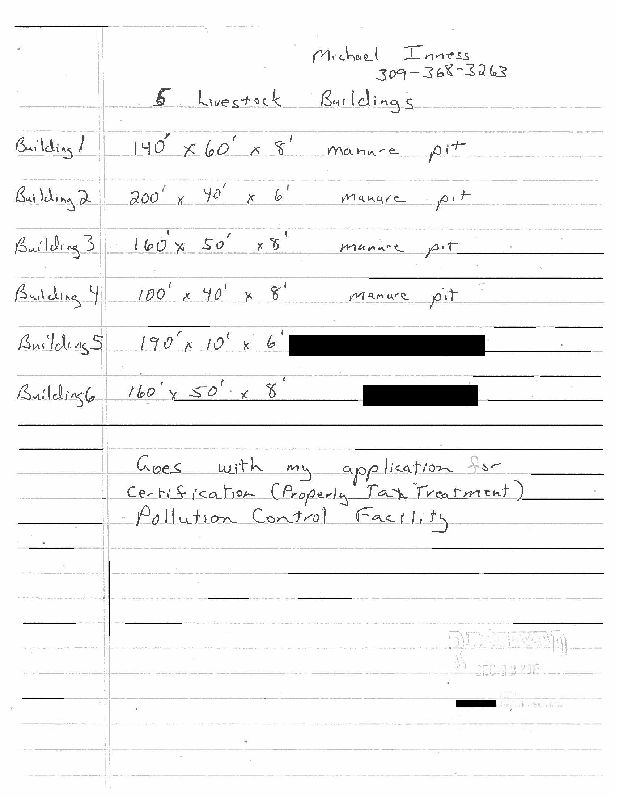 Michael Inness
309-368-3263
6 Livestock Buildings
Building 1 140' x 60' x 8' manure pit
Building 2 200' x 40' x 6' manure pit
Building 3 160' x 50' x 8' manure pit
Building 4 100' x 40' x 8' manure pit
Building 5 190' x 10' x 6'
Building 6 160' x 50' x 8'
Goes with my application for
Certification (Property Tax Treatment)
Pollution Control Facility